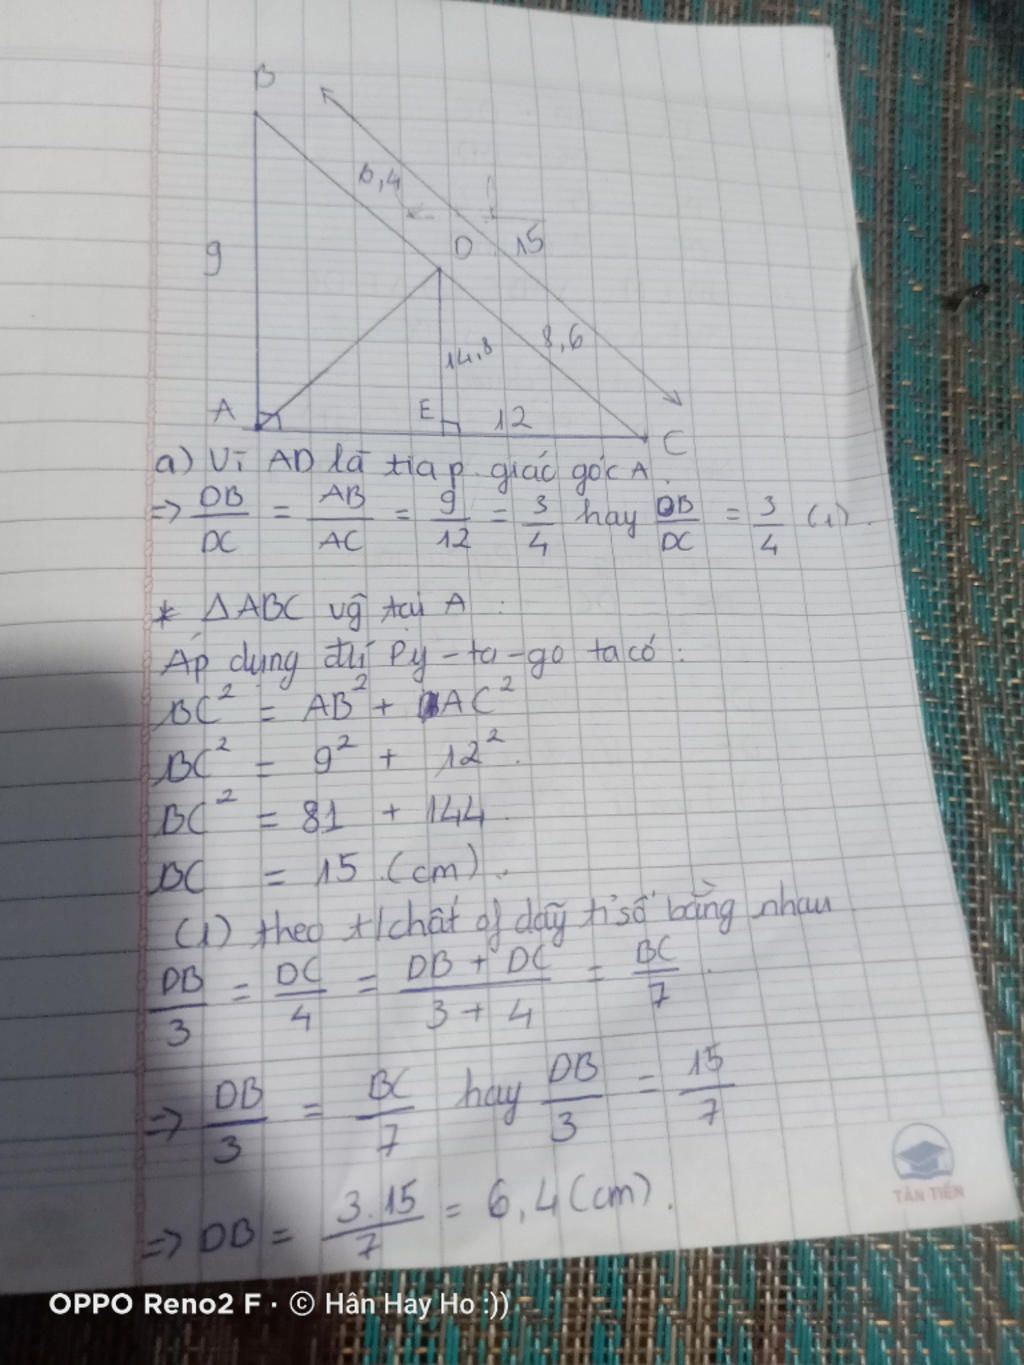 B
6,4
D
15
9
14,8
8,6
A
E
12
C
a) Vì AD là tia p. giác góc A.
=> DB/DC = AB/AC = 9/12 = 3/4 hay DB/DC = 3/4 (1).
* ΔABC vg̃ tại A :
Áp dụng đlí Py-ta-go ta có :
BC² = AB² + AC²
BC² = 9² + 12².
BC² = 81 + 144.
BC = 15 (cm).
(1) theo t/chất of dãy tỉ số bằng nhau
DB/3 = DC/4 = (DB + DC)/(3 + 4) = BC/7.
=> DB/3 = BC/7 hay DB/3 = 15/7
=> DB = 3.15/7 = 6,4 (cm).
TÂN TIẾN
OPPO Reno2 F · © Hân Hay Ho :))